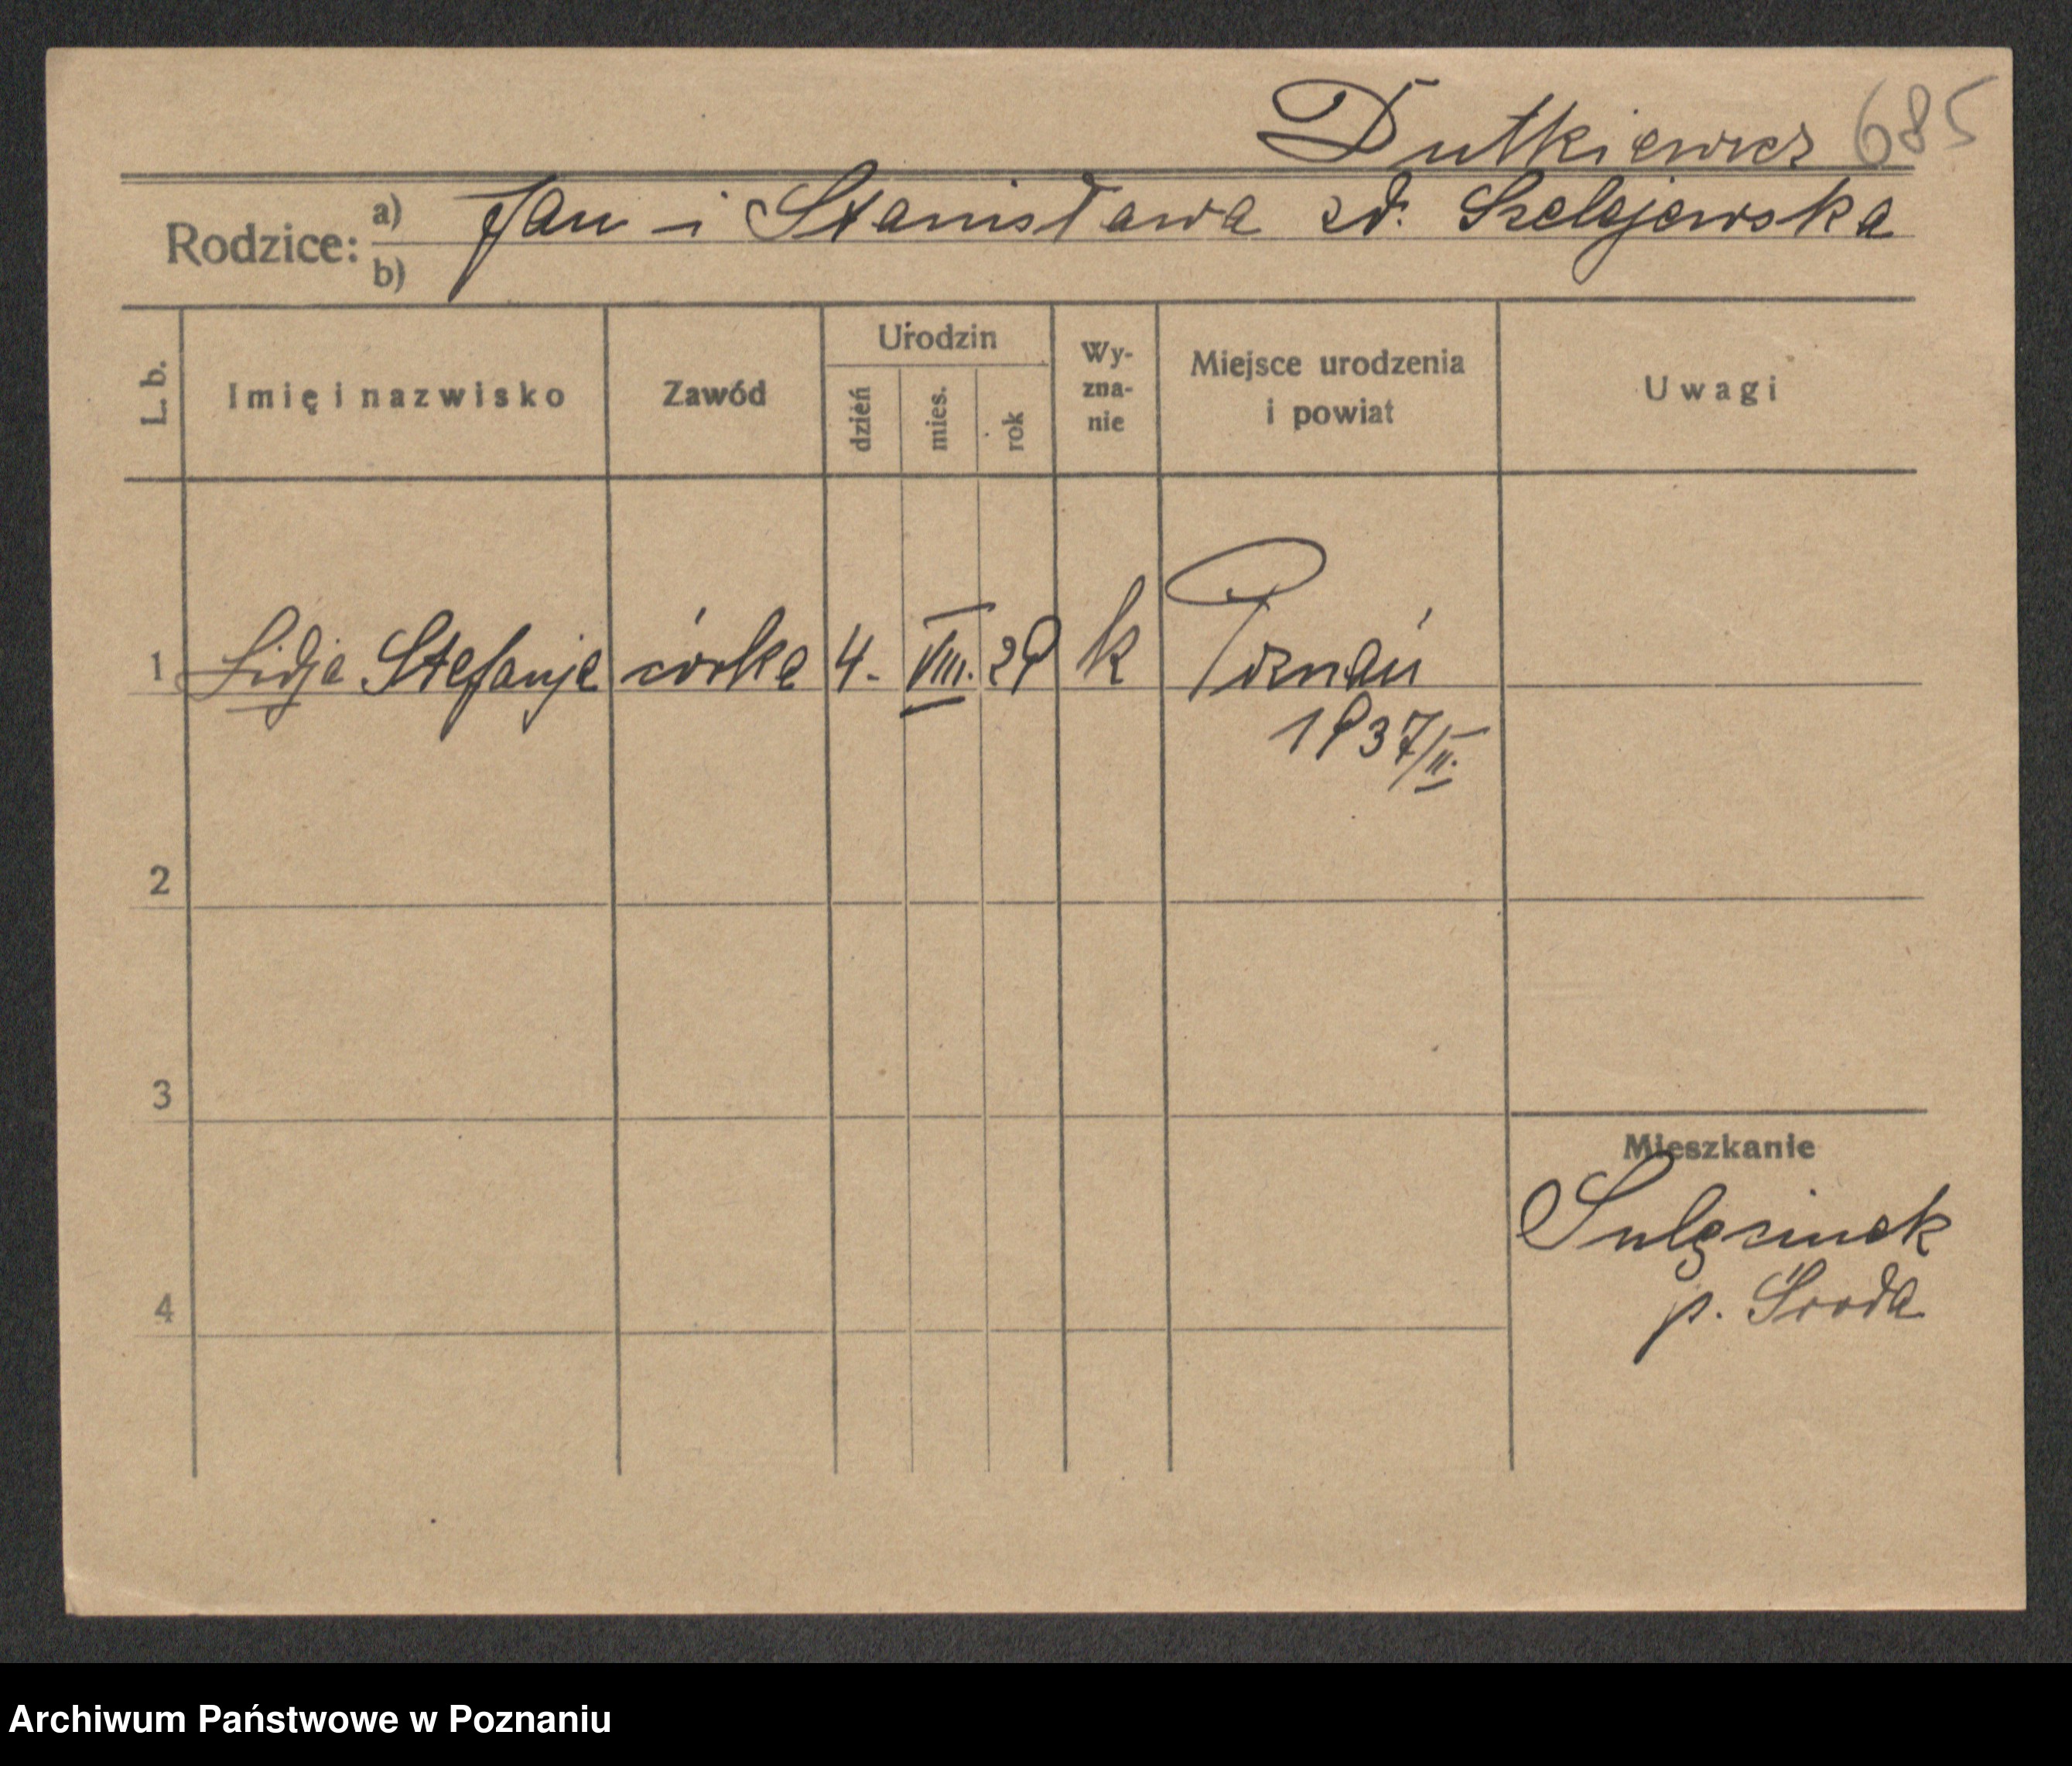 Dutkiewicz 685
Rodzice: a) Jan i Stanisława zd. Szelejewska
b)
L. b.
Imię i nazwisko
Zawód
Urodzin
dzień
mies.
rok
Wy-
zna-
nie
Miejsce urodzenia
i powiat
Uwagi
1 Lidja Stefanja córka 4. VIII. 29 k Poznań
1937/II.
2
3
Mieszkanie
Sulęcinek
p. Środa
4
Archiwum Państwowe w Poznaniu